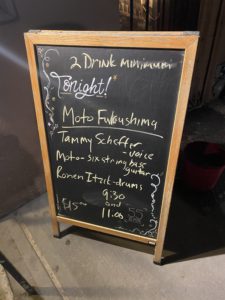 2 Drink minimum
Tonight!
Moto Fukushima
Tammy Scheffer
- voice
Moto - six string bass
guitar
Ronen Itzik - drums
9:30
and
$15⁰⁰ 11:00